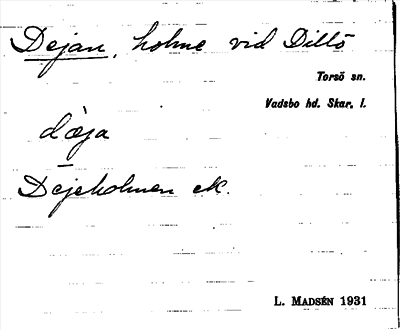 Dejan, holme vid Dillö
Torsö sn.
Vadsbo hd. Skar. l.
dæ̀ja
Dejeholmen ek.
L. MADSÉN 1931